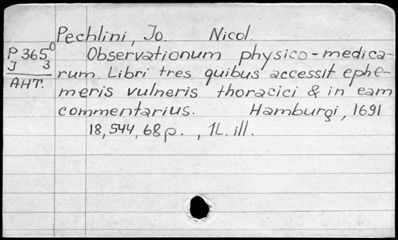 Pechlini, Jo. Nicol.
P 365⁰ Observationum physico-medica-
J 3 rum Libri tres quibus accessit ephe-
AHT. meris vulneris thoracici & in eam
commentarius. Hamburgi, 1691
18, 544, 68 p. , 1 L. ill.